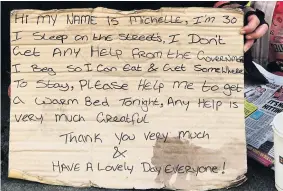 Hi MY NAME is Michelle, I'm 30
I Sleep on the Streets, I Don't
Get Any Help from the Government
I Beg so I Can Eat & Get Somewhere
To Stay, Please Help Me to get
a Warm Bed Tonight, Any Help is
very much Greatful
Thank you very much
&
Have a Lovely Day Everyone!